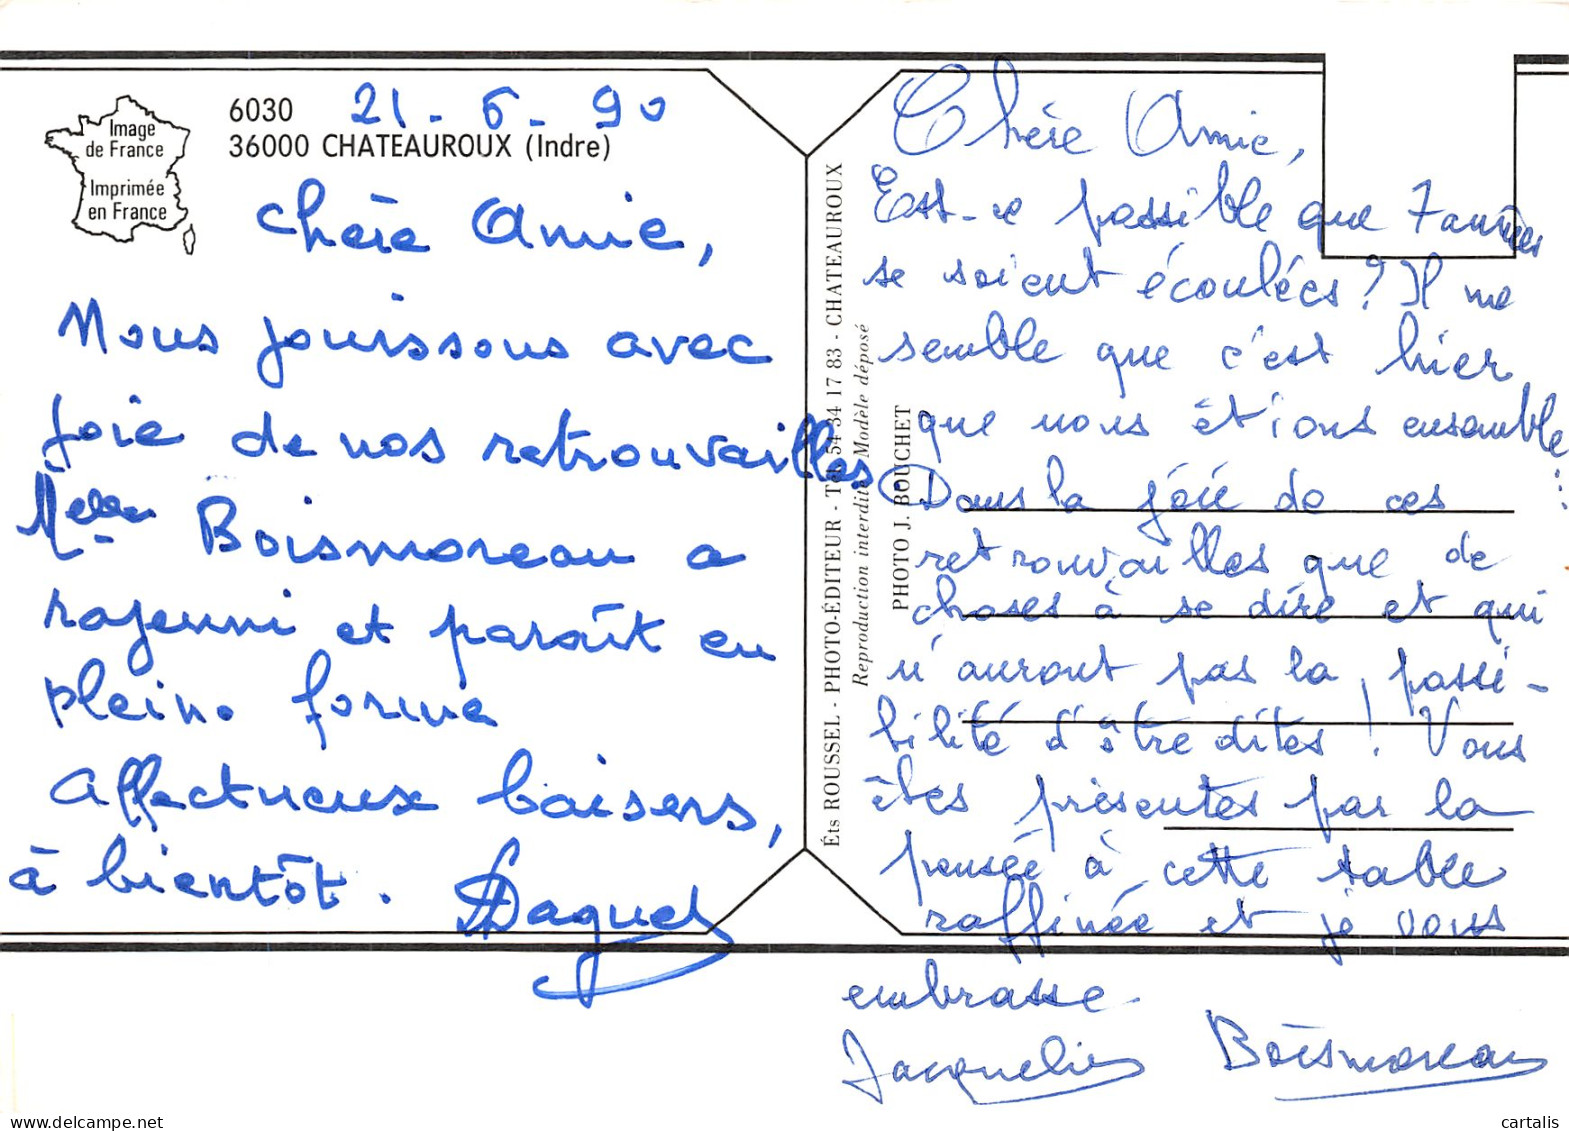 Image
de France
Imprimée
en France
6030
21-6-90
36000 CHATEAUROUX (Indre)
Chère Amie,
Nous jouissons avec
joie de nos retrouvailles
Boismoreau a
rajeuni et paraît en
pleine forme
Affectueux baisers,
à bientôt.
Éts ROUSSEL - PHOTO-ÉDITEUR - Tél. 54 34 17 83 - CHATEAUROUX
Reproduction interdite. Modèle déposé
PHOTO J. BOUCHET
Chère Amie,
Est-ce possible que 7 années
se soient écoulées ? Il me
semble que c'est hier
que nous étions ensemble
Dans la joie de ces
retrouvailles que de
choses à se dire et qui
n'auront pas la possi-
bilité d'être dites ! Vous
êtes présentes par la
pensée à cette table
raffinée et je vous
embrasse
Jacqueline Boismoreau
cartalis